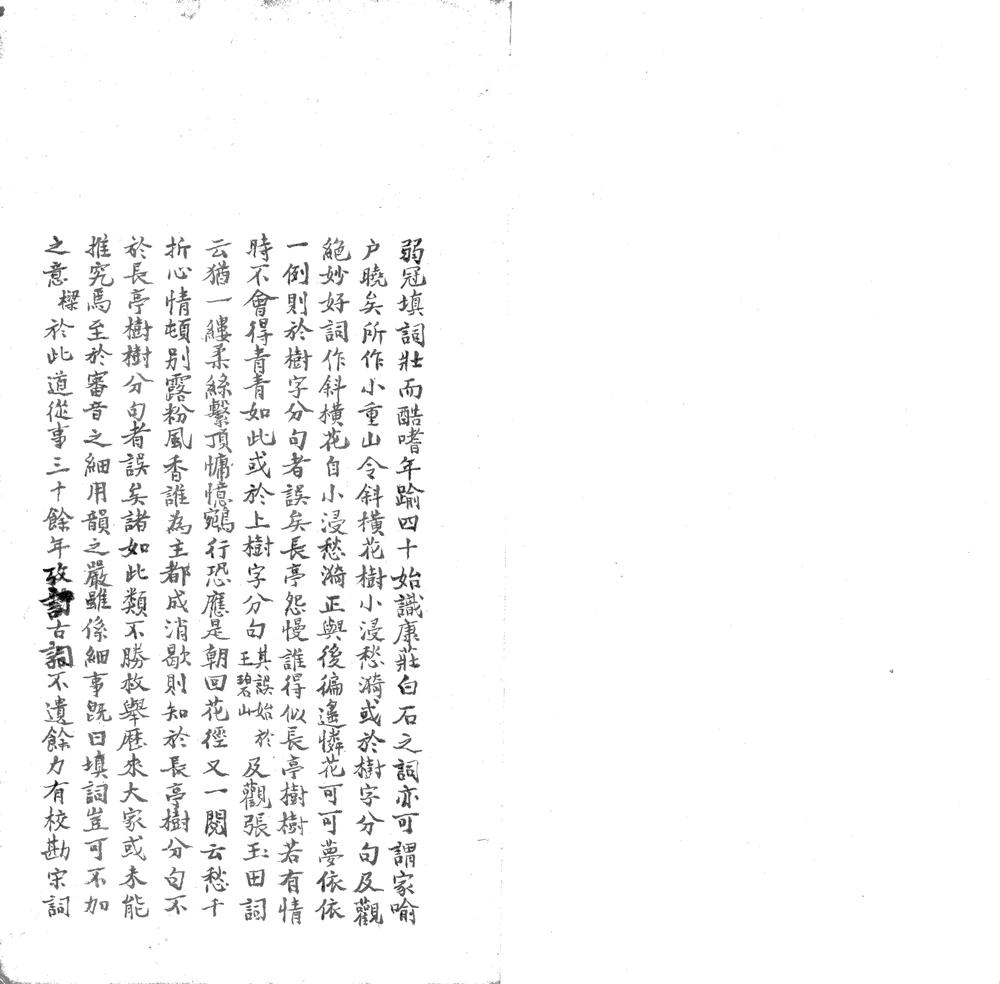 弱冠填詞壯而酷嗜年踰四十始識康莊白石之詞亦可謂家喻
户曉矣所作小重山令斜横花樹小浸愁漪或於樹字分句及觀
絕妙好詞作斜横花自小浸愁漪正與後徧遙憐花可可夢依依
一例則於樹字分句者誤矣長亭怨慢誰得似長亭樹樹若有情
時不會得青青如此或於上樹字分句其誤始於王碧山及觀張玉田詞
云猶一縷柔絲繫頂慵憶鵷行恐應是朝回花徑又一閱云愁千
折心情頓别露粉風香誰為主都成消歇則知於長亭樹分句不
於長亭樹樹分句者誤矣諸如此類不勝枚舉歷來大家或未能
推究焉至於審音之細用韻之嚴雖係細事既曰填詞豈可不加
之意樑於此道從事三十餘年攷古詞不遺餘力有校勘宋詞